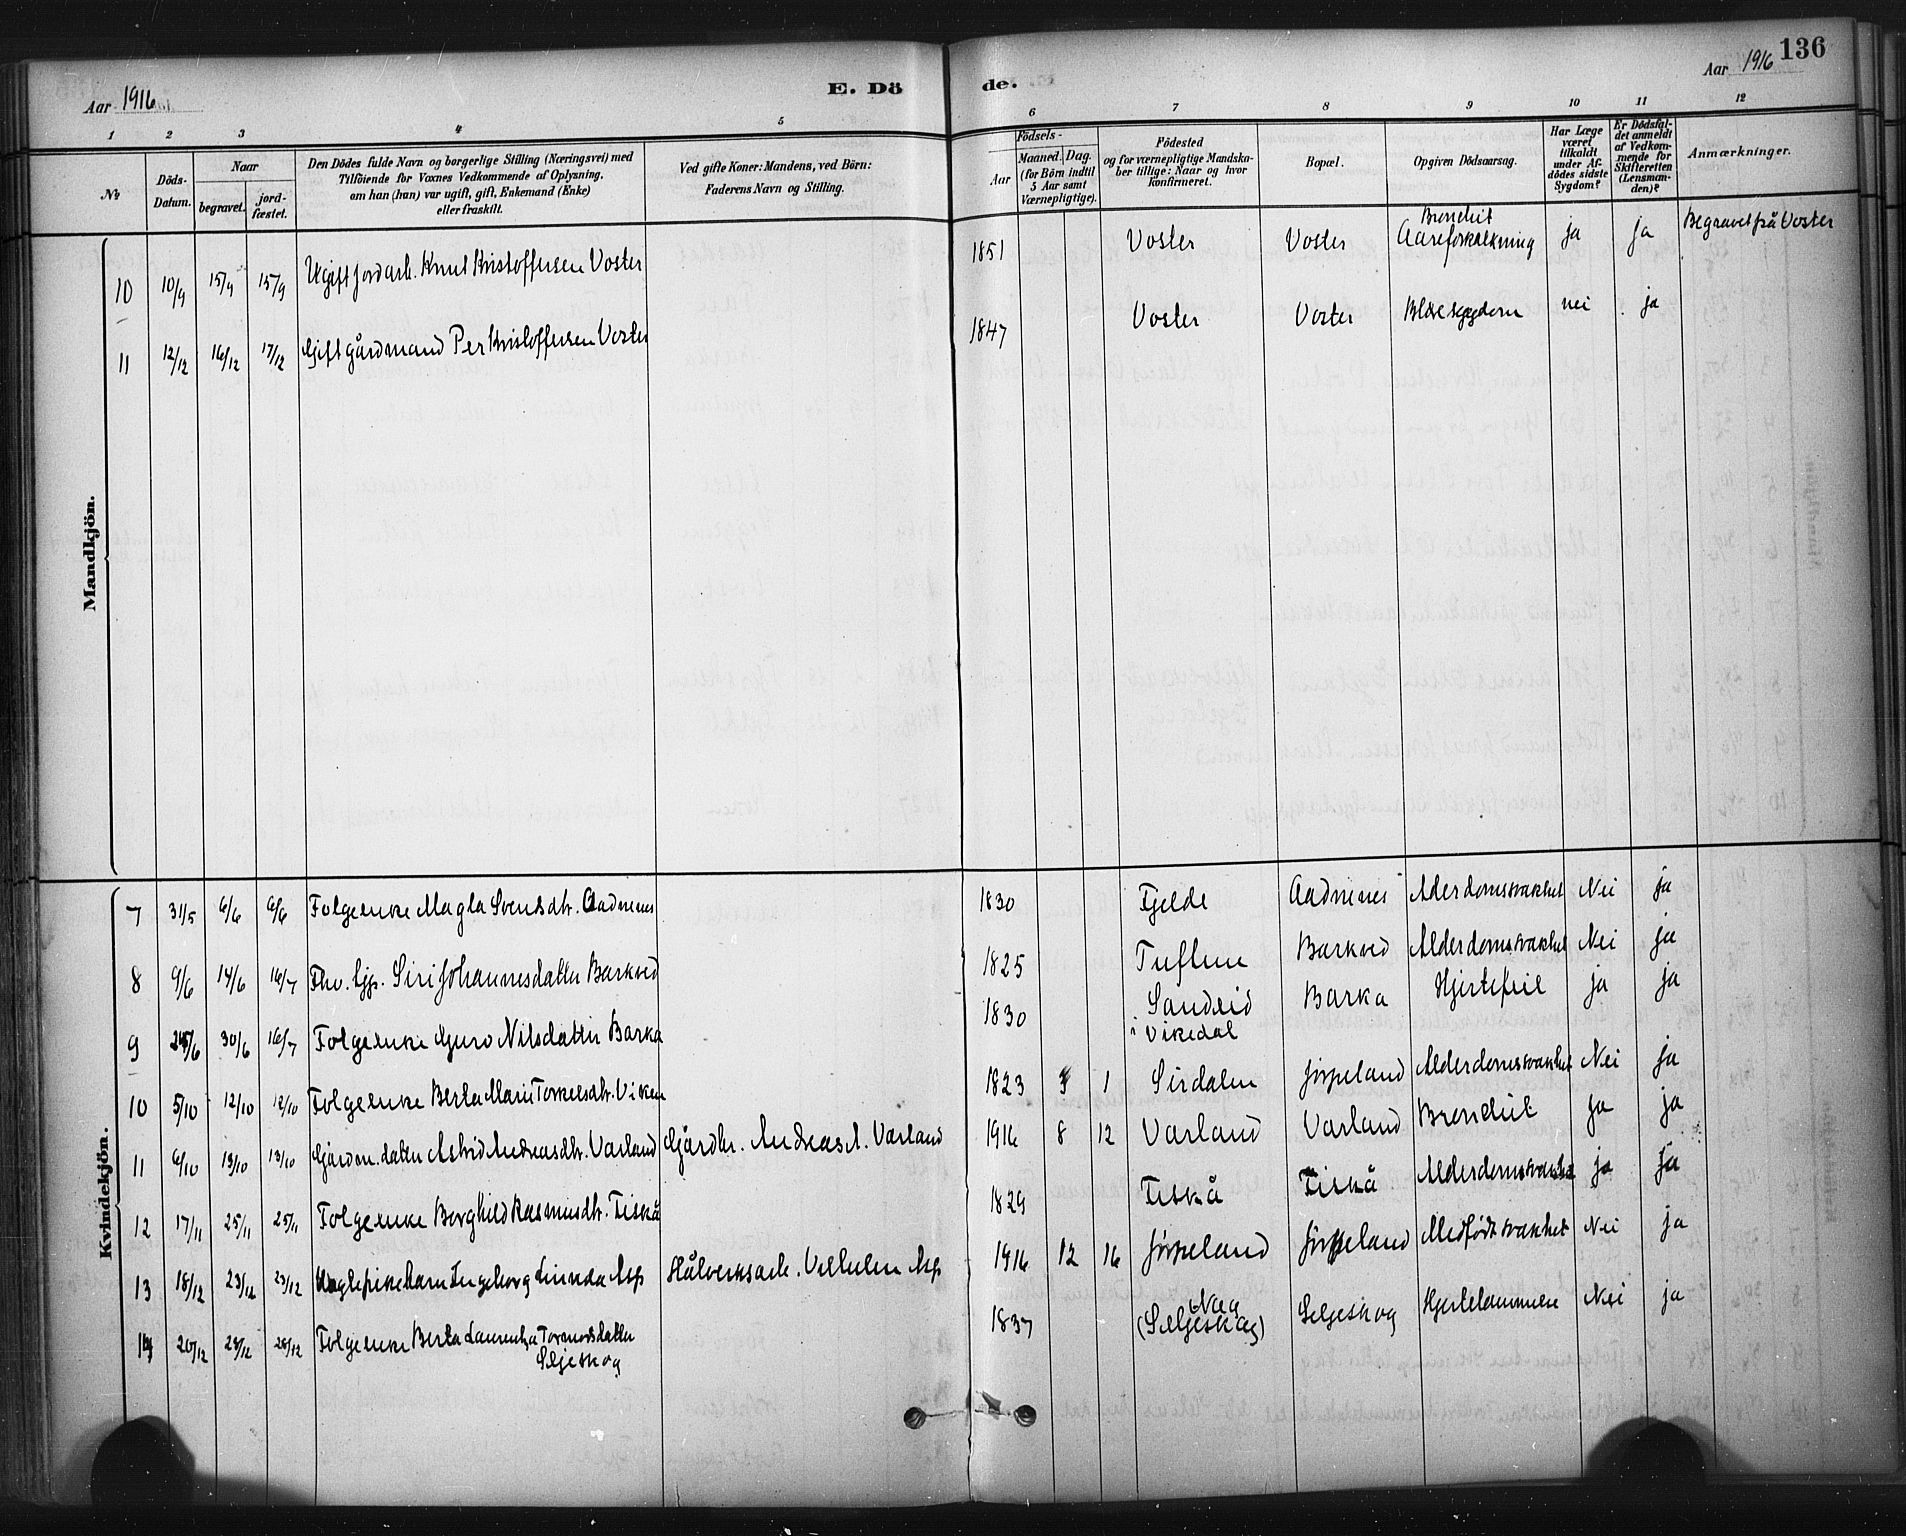 Aar 1916
E. Dö
de.
Aar 1916
136
1 2 3 4 5 6 7 8 9 10 11 12
No
Döds-Datum.
Naar
begravet.
jord-fæstet.
Den Dödes fulde Navn og borgerlige Stilling (Næringsvei) med
Tilföiende for Voxnes Vedkommende af Oplysning,
om han (hun) var ugift, gift, Enkemand (Enke)
eller fraskilt.
Ved gifte Koner: Mandens, ved Börn:
Faderens Navn og Stilling.
Födsels-
Aar
Maaned. Dag.
(for Börn indtil
5 Aar samt
Værnepligtige).
Födested
og for værnepligtige Mandska-
ber tillige: Naar og hvor
konfirmeret.
Bopæl.
Opgiven Dödsaarsag.
Har Læge
været
tilkaldt
under Af-
dödes sidste
Sygdom?
Er Dödsfal-
det anmeldt
af Vedkom-
mende for
Skifteretten
(Lensman-
den)?
Anmærkninger.
Mandkjön.
10 10/9 15/9 15/9 Ugift jordarb. Knut Kristoffersen Voster 1851 Voster Voster Bronchit Aareforkalkning ja ja Begravet frå Voster
11 12/12 16/12 17/12 Gift gårdmand Per Kristoffersen Voster 1847 Voster Voster nei ja
Kvindekjön.
7 31/5 6/6 6/6 Folgeenke Magla Svensdtr. Aadnenes 1830 Fjelde Aadnenes Alderdomsvakhet Nei ja
8 9/6 14/6 16/7 Fhv. Siri Johannesdatter Barkved 1825 Tuftene Barkved Alderdomsvakhet Nei ja
9 25/6 30/6 16/7 Folgeenke Guro Nilsdatter Barka 1830 Sandeid i Vikedal Barka Hjertefeil ja ja
10 5/10 12/10 12/10 Folgeenke Berta Marie Torkelsdtr. Viken 1823 1 Sirdalen Jörpeland Alderdomsvakhet Nei ja
11 6/10 13/10 13/10 Gårdm. datter Astrid Andreasdtr. Varland Gårdbr. Andreas A. Varland 1916 8 12 Varland Varland Bronchit ja ja
12 17/11 25/11 25/11 Folgeenke Borghild Rasmusdtr. Fiskå 1829 Fiskå Fiskå Alderdomsvakhet ja ja
13 18/12 23/12 23/12 Uegte pikebarn Ingeborg Linnda Asp Stålverksarb. Vilhelm Asp 1916 12 16 Jörpeland Jörpeland Medfödt svakhet Nei ja
14 20/12 28/12 28/12 Folgeenke Berta Laurentza Tormodsdatter Seljeskog 1837 Nag (Seljeskog) Seljeskog Hjertelammelse Nei ja